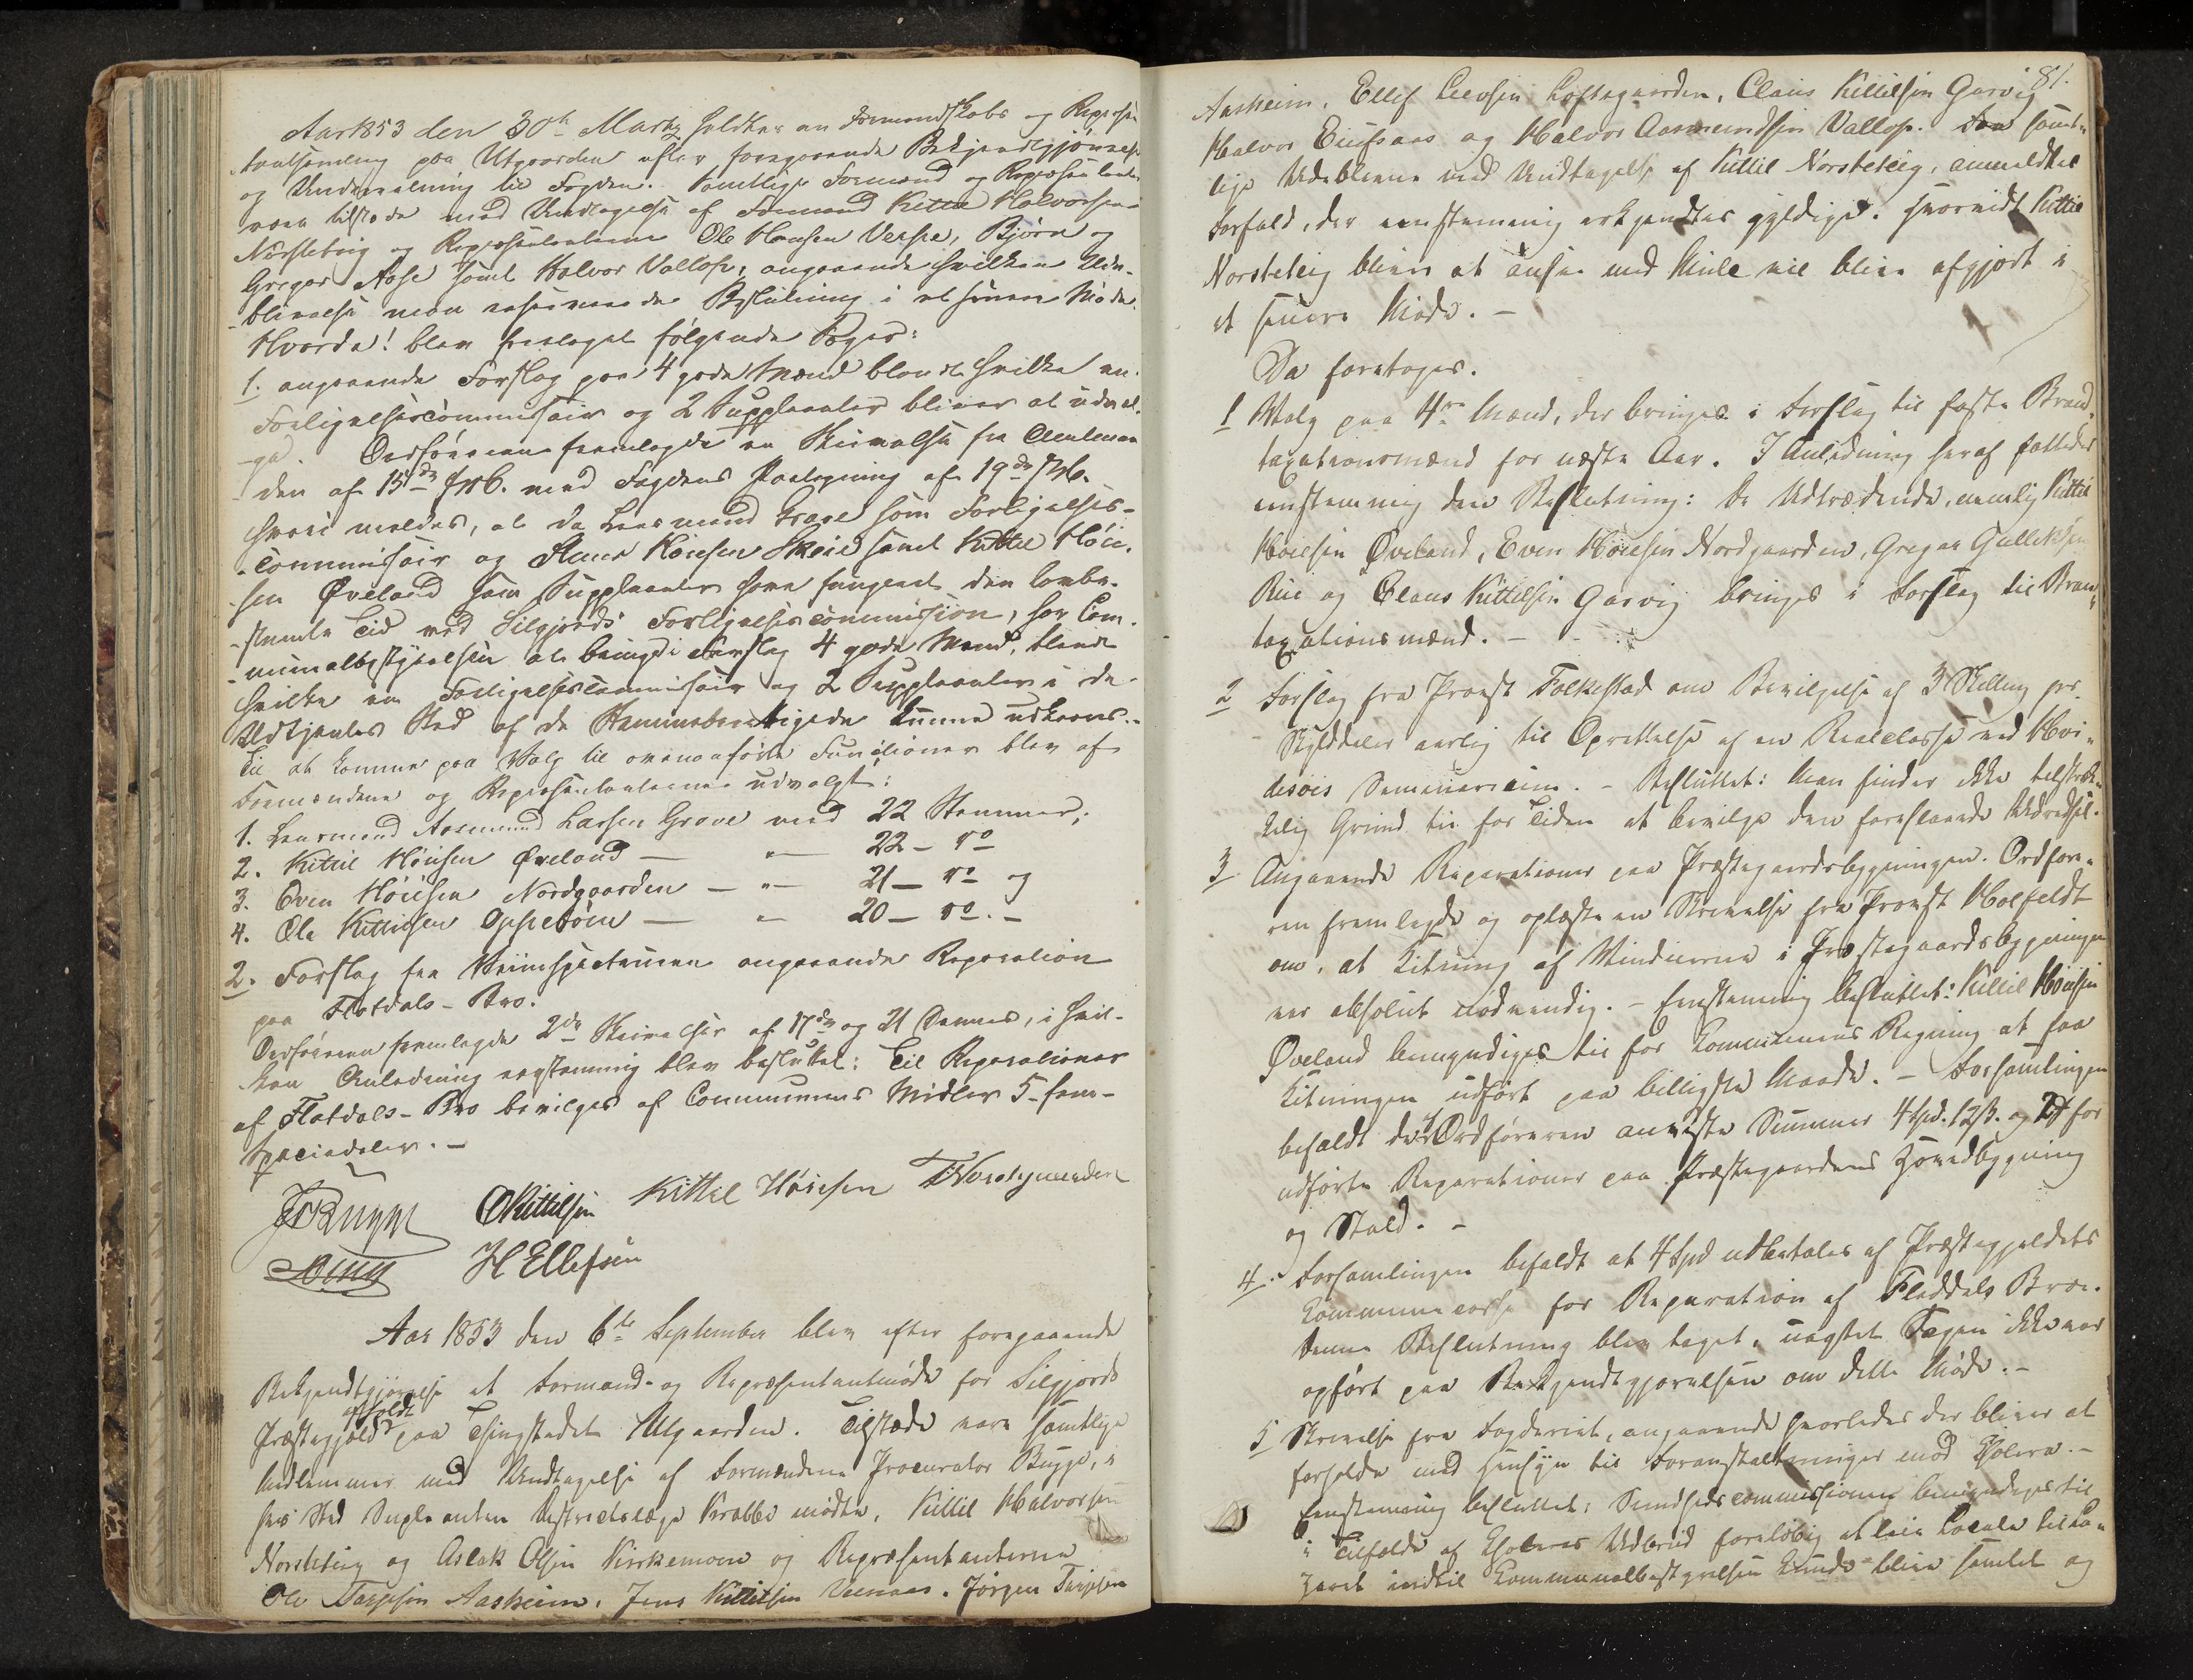 Aar 1853 den 30te Marts holdtes en Formandskabs og Repræsen
tantsamling paa Utgaarden efter foregaaende Bekjendtgjørelse
og Underretning til Fogden. Samtlige Formænd og Repræsentanter
vare tilstede med Undtagelse af Formand Kittil Halvorsen
Norsteteig og Repræsentanterne Ole Hansen Versie, Bjørn og
Gregar Aase samt Halvor Vallop, angaaende hvilkes Ude-
blivelse man reserverede Beslutning i et senere Møde.
Hvorda! blev foretaget følgende Sager:
1. angaaende Forslag paa 4 gode Mænd blandt hvilke en
Forligelsescommissair og 2 Suppleanter bliver at udvæl-
ge. Ordføreren fremlagde en Skrivelse fra Amtmanden
den af 15de Feb. med Fogdens Paategning af 19de
hvori meldes, at da Lensmand Grave som Forligelses-
commissair og Halvor Høiesen Skeie samt Kittil Høie-
sen Øveland som Suppleanter have fungeret den lovbe-
stemte Tid ved Silgjords Forligelsescommission, har Com-
munalbestyrelsen at bringe i Forslag 4 gode Mænd, blandt
hvilke en Forligelsescommissair og 2 Suppleanter i de
Udtjentes Sted af de Stemmeberettigede kunne udkaares.
Til at komme paa Valg til ovenanførte Functioner blev af
Formændene og Repræsentanterne udvalgt:
1. Lensmand Aasmund Larsen Grave med 22 Stemmer;
2. Kittil Høiesen Øveland — " — 22 — do
3. Even Høiesen Nordgaarden — " — 21 — do og
4. Ole Kittilsen Oppebøen — " — 20 — do. —
2. Forslag fra Veiinspecteuren angaaende Reparation
paa Flatdals-Bro.
Ordføreren fremlagde 2de Skrivelser af 17de og 21 Dennes, i hvil-
ken Anledning eenstemmig blev besluttet: Til Reparationer
af Flatdals-Bro bevilges af Communens Midler 5-fem-
Speciedaler. —
JCBugge OKittilsen Kittil Høiesen
HEllefsen
Aar 1853 den 6te September blev efter foregaaende
Bekjendtgjørelse et Formands- og Repræsentantmøde for Silgjords
Præstegjeld afholdt paa Thingstedet Utgaarden. Tilstede vare samtlige
Medlemmer med Undtagelse af Formændene Procurator Bugge, i
hvis Sted Supleanten Districtslæge Krabbe mødte, Kittil Halvorsen
Norsteteig og Aslak Olsen Kirkemoen og Repræsentanterne
Ole Tarjesen Aasheim, Jens Kittilsen Versaas, Jørgen Tarjesen
81.
Aasheim, Ellef Leevsen Loftsgaarden, Claus Kittilsen Garvig
Halvor Eiufsaas og Halvor Aasmundsen Vallop. samt-
lige Udeblevne med Undtagelse af Kittil Norsteteig, anmeldte
Forfald, der eenstemmig erkjendtes gyldiged. Hvorvidt Kittil
Norsteteig bliver at ansee med Mulct vil blive afgjort i
et senere Møde. —
Da foretoges.
1 Valg paa 4re Mænd, der bringes i Forslag til faste Brand-
taxationsmænd for næste Aar. I Anledning heraf fattedes
eenstemmig den Beslutning: De Udtrædende, nemlig Kittil
Høiesen Øveland, Even Høiesen Nordgaarden, Gregar Gulleksen
Rui og Claus Kittilsen Garvig bringes i Forslag til Brand-
taxationsmænd. —
2 Forslag fra Provst Folkestad om Bevilgelse af 3 Skilling pr.
Skylddaler aarlig til Oprettelse af en Realclasse ved Hvi-
desøes Seminarium. — Besluttet: Man finder ikke tilstræk-
kelig Grund til for Tiden at bevilge den foreslaaede Udredsel.
3 Angaaende Reparationer paa Præstegaardsbygningen. Ordføre-
ren fremlagde og oplæste en Skrivelse fra Provst Holfeldt
om, at Kitning af Vinduerne i Præstegaardsbygningen
var absolut nødvendig. — Eenstemmig besluttet: Kittil Høiesen
Øveland bemyndiges til for Communens Regning at faa
Kitningen udført paa billigste Maade. — Forsamlingen
befaldt den af Ordføreren anviste Summer 4 Spd. 12 ß. og for
udførte Reparationer paa Præstegaardens Hovedbygning
og Stald. —
4. Forsamlingen befaldt at 4 Spd udbetales af Præstegjeldets
Communecasse for Reparation af Fladdals Broe.
Denne Beslutning blev taget, uagtet Sagen ikke var
opført paa Bekjendtgjørelsen om dette Møde. —
5 Skrivelse fra Fogderiet, angaaende hvorledes der bliver at
forholde med Hensyn til Foranstaltninger mod Cholera. —
Eenstemmig besluttet: Sundhedscommissionen bemyndiges til
i Tilfælde af Choleras Udbrud foreløbig at leie Locale til La-
zaret indtil Communalbestyrelsen kunde blive samlet og